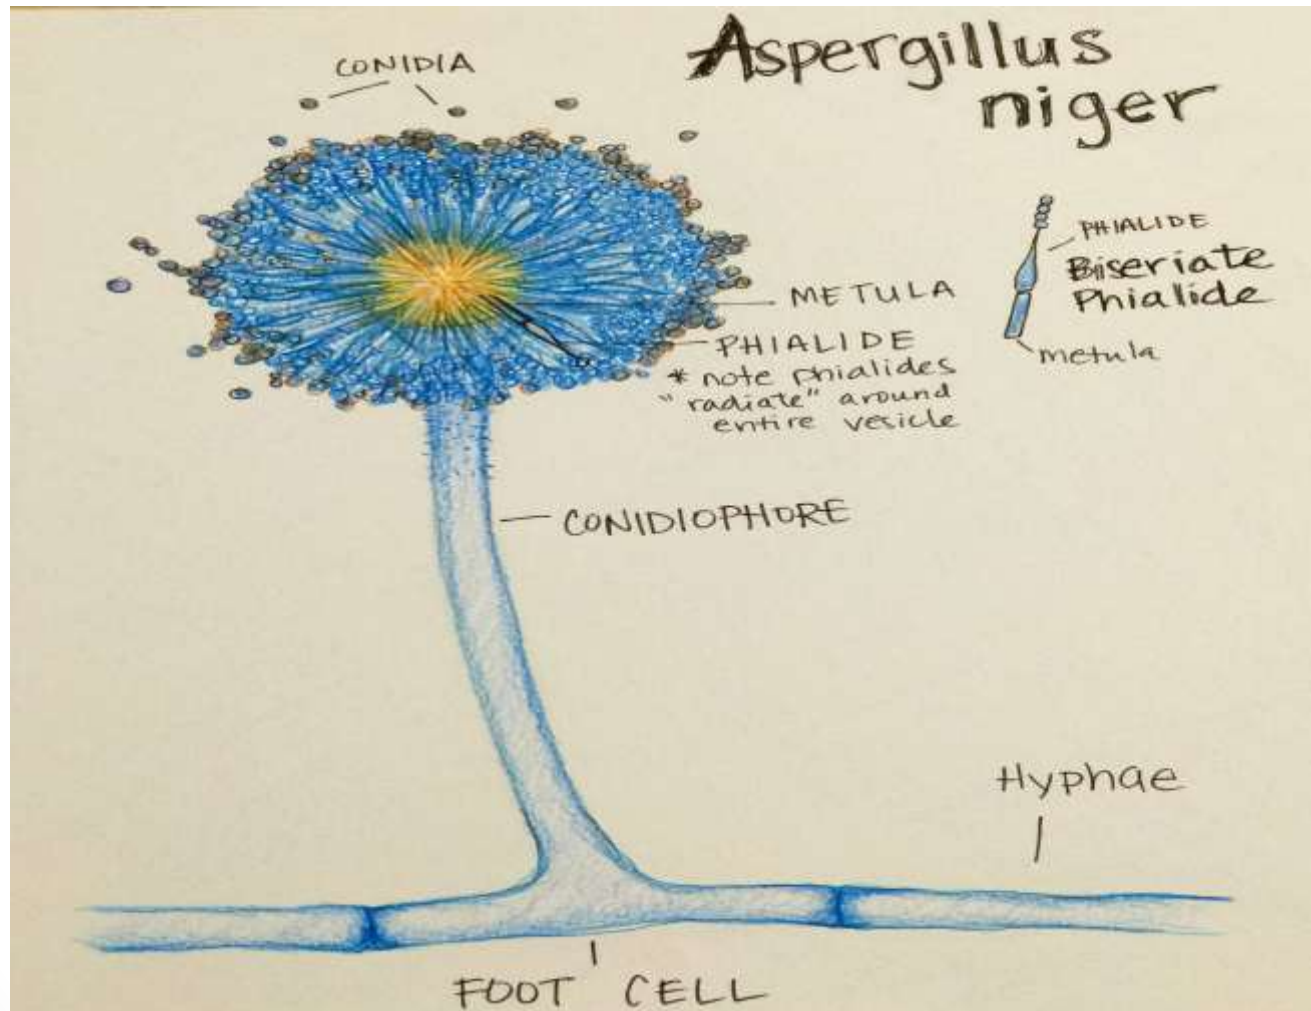 Aspergillus
niger
CONIDIA
PHIALIDE
Biseriate
Phialide
metula
METULA
PHIALIDE
* note phialides
"radiate" around
entire vesicle
CONIDIOPHORE
Hyphae
FOOT CELL